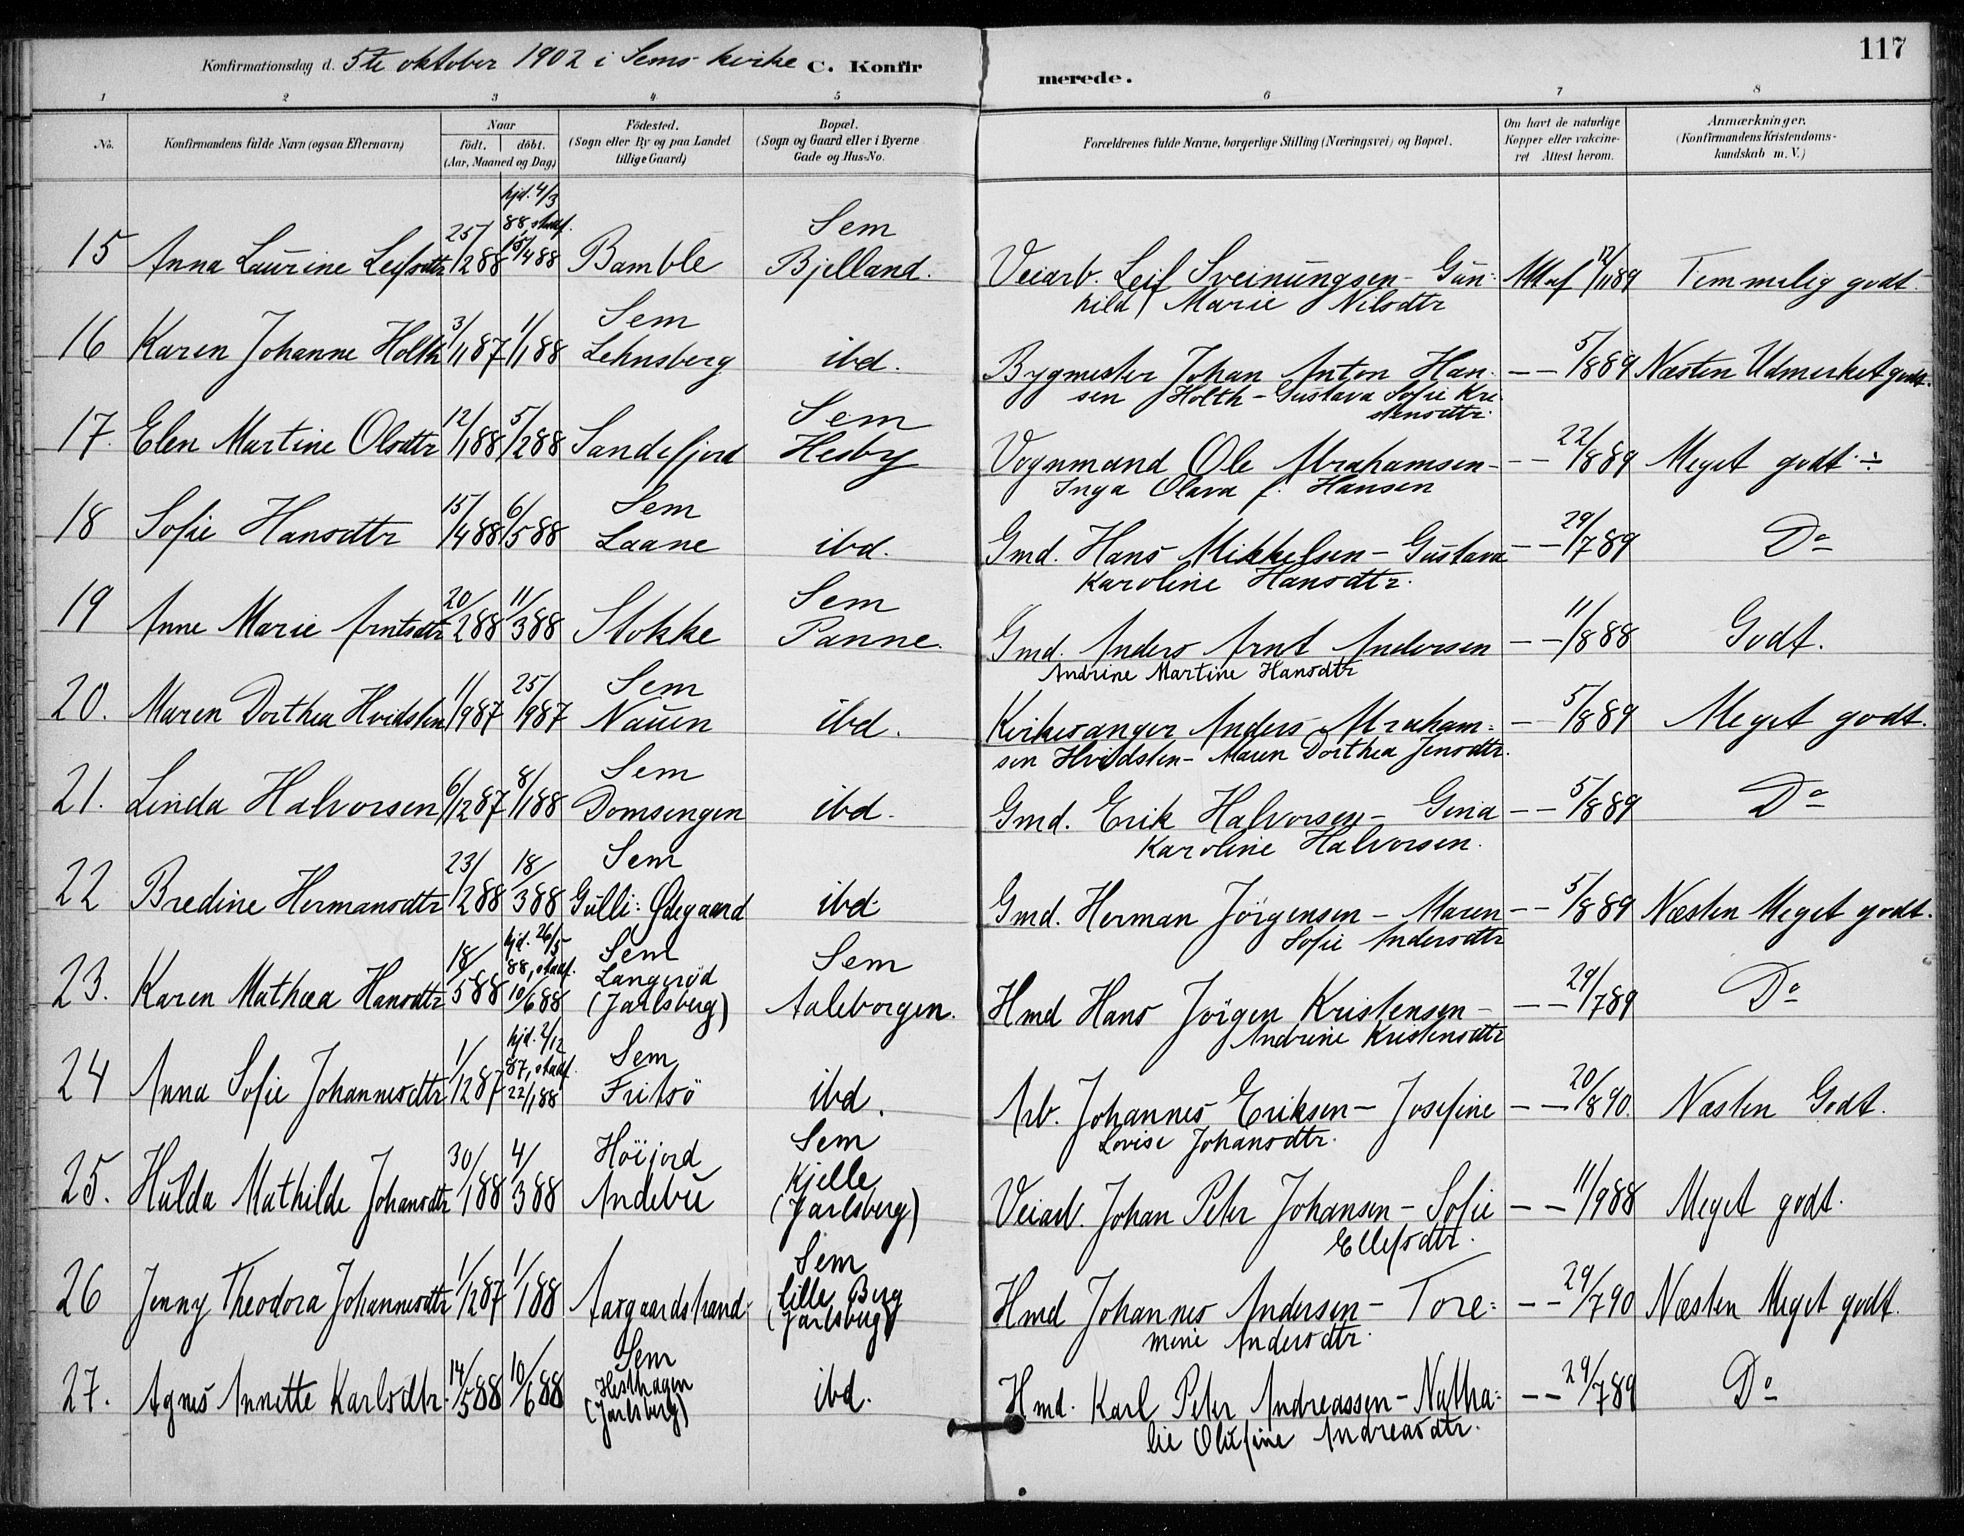 117
Konfirmationsdag d. 5te oktober 1902 i Sems kirke C. Konfirmerede.
1 2 3 4 5 6 7 8
No. Konfirmandens fulde Navn (ogsaa Efternavn) Naar født. døbt. (Aar, Maaned og Dag) Fødested. (Sogn eller By og paa Landet tillige Gaard) Bopæl. (Sogn og Gaard eller i Byerne Gade og Hus-No. Forældrenes fulde Navne, borgerlige Stilling (Næringsvei) og Bopæl. Om havt de naturlige Kopper eller vakcineret Attest herom. Anmærkninger. (Konfirmandens Kristendomskundskab m. V.)
15 Anna Laurine Leifsdtr 25/288 hjd. 4/3 88, stadf. 15/488 Bamble Sem Bjelland. Veiarb. Leif Sveinungsen - Gun=
hild Marie Nilsdtr 12/1189 Temmelig godt
16 Karen Johanne Holth 3/1187 1/188 Sem Lehnsberg ibd. Bygmester Johan Anton Han-
sen Holth - Gustava Sofie Kri-
stensdtr. — — 5/889 Næsten Udmerket godt.
17. Elen Martine Olsdtr 12/188 5/288 Sandefjord Sem Hesby Vognmand Ole Abrahamsen -
Inga Olava f. Hansen — — 22/889 Meget godt ÷
18 Sofie Hansdtr 15/488 6/588 Sem Laane ibd. Gmd. Hans Mikkelsen - Gustava
Karoline Hansdtr. — — 29/789 Do
19 Anne Marie Arntsdtr 20/288 11/388 Stokke Sem Panne. Gmd. Anders Arnt Andersen
Andrine Martine Hansdtr — — 11/888 Godt.
20. Maren Dorthea Hvidsten 1/987 25/987 Sem Nauen ibd. Kirkesanger Anders Abraham=
sen Hvidsten - Maren Dorthea Jensdtr. — 5/889 Meget godt.
21. Linda Halvorsen 6/1287 8/188 Sem Domsengen ibd. Gmd. Erik Halvorsen - Gina
Karoline Halvorsen. — — 5/889 Do
22 Bredine Hermansdtr 23/288 18/388 Sem Gulli: Ødegaard ibd. Gmd. Herman Jörgensen - Maren
Sofie Andersdtr — — 5/889 Næsten Meget godt.
23. Karen Mathea Hansdtr 18/588 hjd. 26/5 88, stadf. 10/688 Sem Langeröd (Jarlsberg) Sem Aaleborgen. Hmd Hans Jörgen Kristensen -
Andrine Kristensdtr — — 29/789 Do
24 Anna Sofie Johannesdtr 1/1287 hjd. 2/12 87, stadf. 22/188 Sem Fritsö ibd. Arb. Johannes Eriksen - Josefine
Lovise Johansdtr. — — 20/890. Næsten Godt.
25. Hulda Mathilde Johansdtr 30/188 4/388 Höijord Andebu Sem Kjelle (Jarlsberg) Veiarb. Johan Peter Johansen - Sofie
Ellefsdtr. — — 11/988 Meget godt.
26 Jenny Theodora Johannesdtr 1/1287 1/188 Aasgaardstrand. Sem Lille Berg (Jarlsberg) Hmd Johannes Andersen - Tore=
mine Andersdtr. — — 29/790 Næsten Meget godt.
27. Agnes Annette Karlsdtr. 14/588 10/688 Sem Hesthagen (Jarlsberg) ibd. Hmd. Karl Peter Andreassen - Natha=
lie Olufine Andreasdtr. — — 29/789 Do